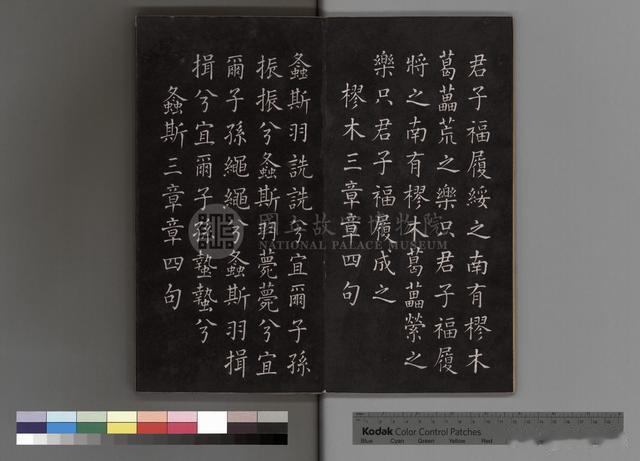 君子福履綏之南有樛木
葛藟荒之樂只君子福履
將之南有樛木葛藟縈之
樂只君子福履成之
樛木三章章四句
螽斯羽詵詵兮宜爾子孫
振振兮螽斯羽薨薨兮宜
爾子孫繩繩兮螽斯羽揖
揖兮宜爾子孫蟄蟄兮
螽斯三章章四句
國立故宮博物院
NATIONAL PALACE MUSEUM
Kodak Color Control Patches
Blue Cyan Green Yellow Red